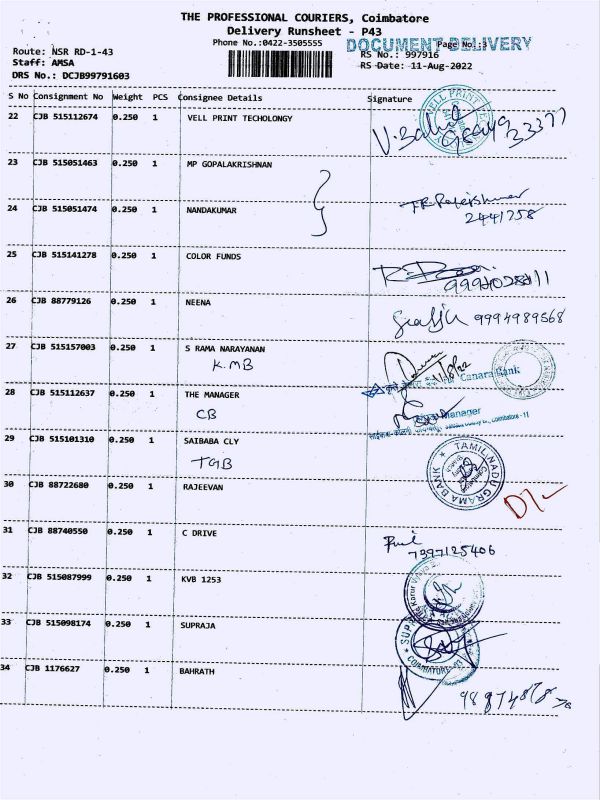 THE PROFESSIONAL COURIERS, Coimbatore
Delivery Runsheet - P43
Phone No.:0422-3505555
DOCUMENT DELIVERY
Page No.:3
Route: NSR RD-1-43
RS No.: 997916
Staff: AMSA
RS Date: 11-Aug-2022
DRS No.: DCJB99791603
S No Consignment No Weight PCS Consignee Details Signature
22 CJB 515112674 0.250 1 VELL PRINT TECHOLONGY
23 CJB 515051463 0.250 1 MP GOPALAKRISHNAN
24 CJB 515051474 0.250 1 NANDAKUMAR
2441758
25 CJB 515141278 0.250 1 COLOR FUNDS
26 CJB 88779126 0.250 1 NEENA
9994989568
27 CJB 515157003 0.250 1 S RAMA NARAYANAN
K.MB
Canara Bank
28 CJB 515112637 0.250 1 THE MANAGER
CB
Manager
29 CJB 515101310 0.250 1 SAIBABA CLY
TGB
TAMIL NADU GRAMA BANK
30 CJB 88722680 0.250 1 RAJEEVAN
31 CJB 88740550 0.250 1 C DRIVE
7397125406
32 CJB 515087999 0.250 1 KVB 1253
33 CJB 515098174 0.250 1 SUPRAJA
COIMBATORE
34 CJB 1176627 0.250 1 BAHRATH